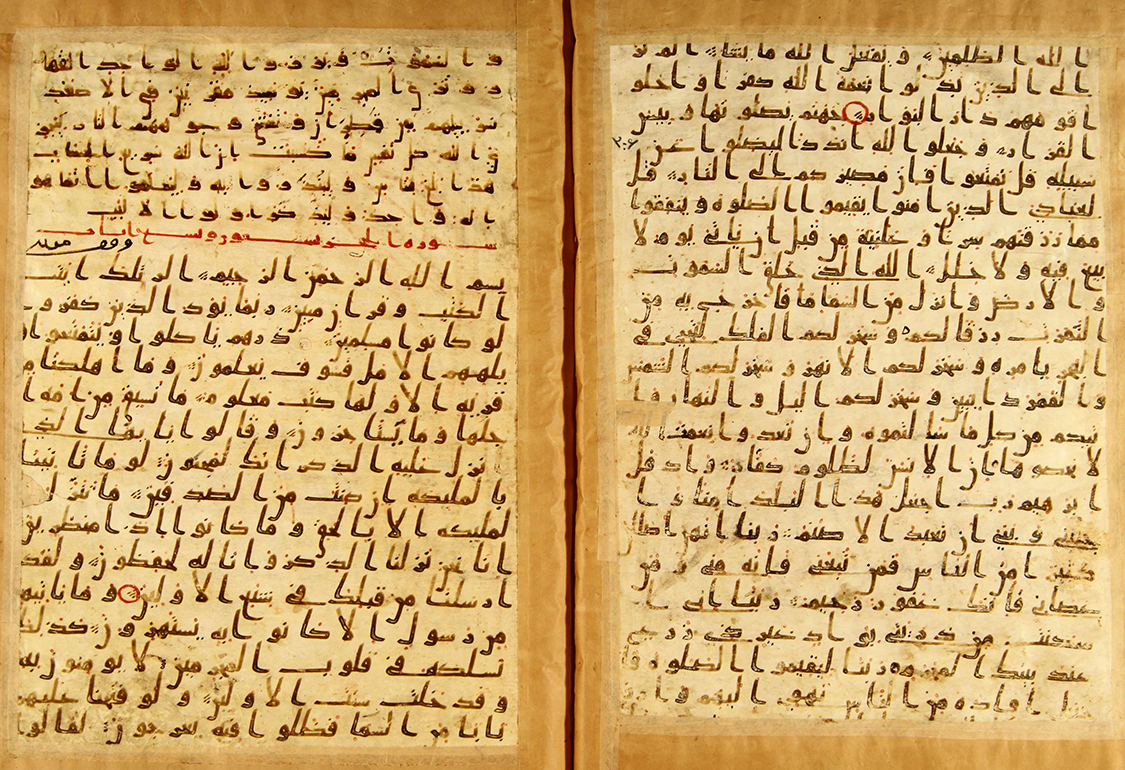 الله الظلمين و يفعل الله ما يشا الم تر
الى الذين بدلوا نعمة الله كفرا و احلو
ا قومهم دار البوار جهنم يصلونها و بيس
القرار و جعلوا لله اندادا ليضلوا عن
سبيله قل تمتعوا فان مصيركم الى النار قل
لعبادي الذين امنوا يقيموا الصلوه و ينفقوا
مما رزقنهم سرا و علنيه من قبل ان ياتي يوم لا
بيع فيه و لا خلل الله الذي خلق السموت
و الارض و انزل من السما ما فاخرج به من
الثمرت رزقا لكم و سخر لكم الفلك لتجري في
البحر بامره و سخر لكم الانهر و سخر لكم الشمس
و القمر دايبين و سخر لكم اليل و النهار و ا
تيكم من كل ما سالتموه و ان تعدوا نعمت الله
لا تحصوها ان الانسن لظلوم كفار و اذ قل
ابرهيم رب اجعل هذا البلد امنا و ا
جنبني و بني ان نعبد الاصنم رب انهن اضللن
كثيرا من الناس فمن تبعني فانه مني و من
عصاني فانك غفور رحيم ربنا اني ا
سكنت من ذريتي بواد غير ذي زرع
عند بيتك المحرم ربنا ليقيموا الصلوه فا
جعل افده من الناس تهوي اليهم و ار
و السموت و برزوا لله الوحد القها
ر و ترى المجرمين يوميذ مقرنين في الاصفد
سربيلهم من قطران و تغشى وجوههم النار ليجز
ي الله كل نفس ما كسبت ان الله سريع الحساب
هذا بلغ للناس و لينذروا به و ليعلموا انما هو
اله وحد و ليذكر اولوا الالبب
سوره الحجر تسعون و تسع ايات
بسم الله الرحمن الرحيم الر تلك ايت
الكتب و قران مبين ربما يود الذين كفروا
لو كانوا مسلمين ذرهم ياكلوا و يتمتعوا و
يلههم الامل فسوف يعلمون و ما اهلكنا من
قريه الا و لها كتب معلوم ما تسبق من امه ا
جلها و ما يستاخرون و قالوا يايها الذي
نزل عليه الذكر انك لمجنون لو ما تاتينا
بالمليكه ان كنت من الصدقين ما ننزل ا
لمليكه الا بالحق و ما كانوا اذا منظرين
انا نحن نزلنا الذكر و انا له لحفظون و لقد
ارسلنا من قبلك في شيع الاولين و ما ياتيهم
من رسول الا كانوا به يستهزون كذلك
نسلكه في قلوب المجرمين لا يومنون به
و قد خلت سنت الاولين و لو فتحنا عليهم
بابا من السما فظلوا فيه يعرجون لقالوا